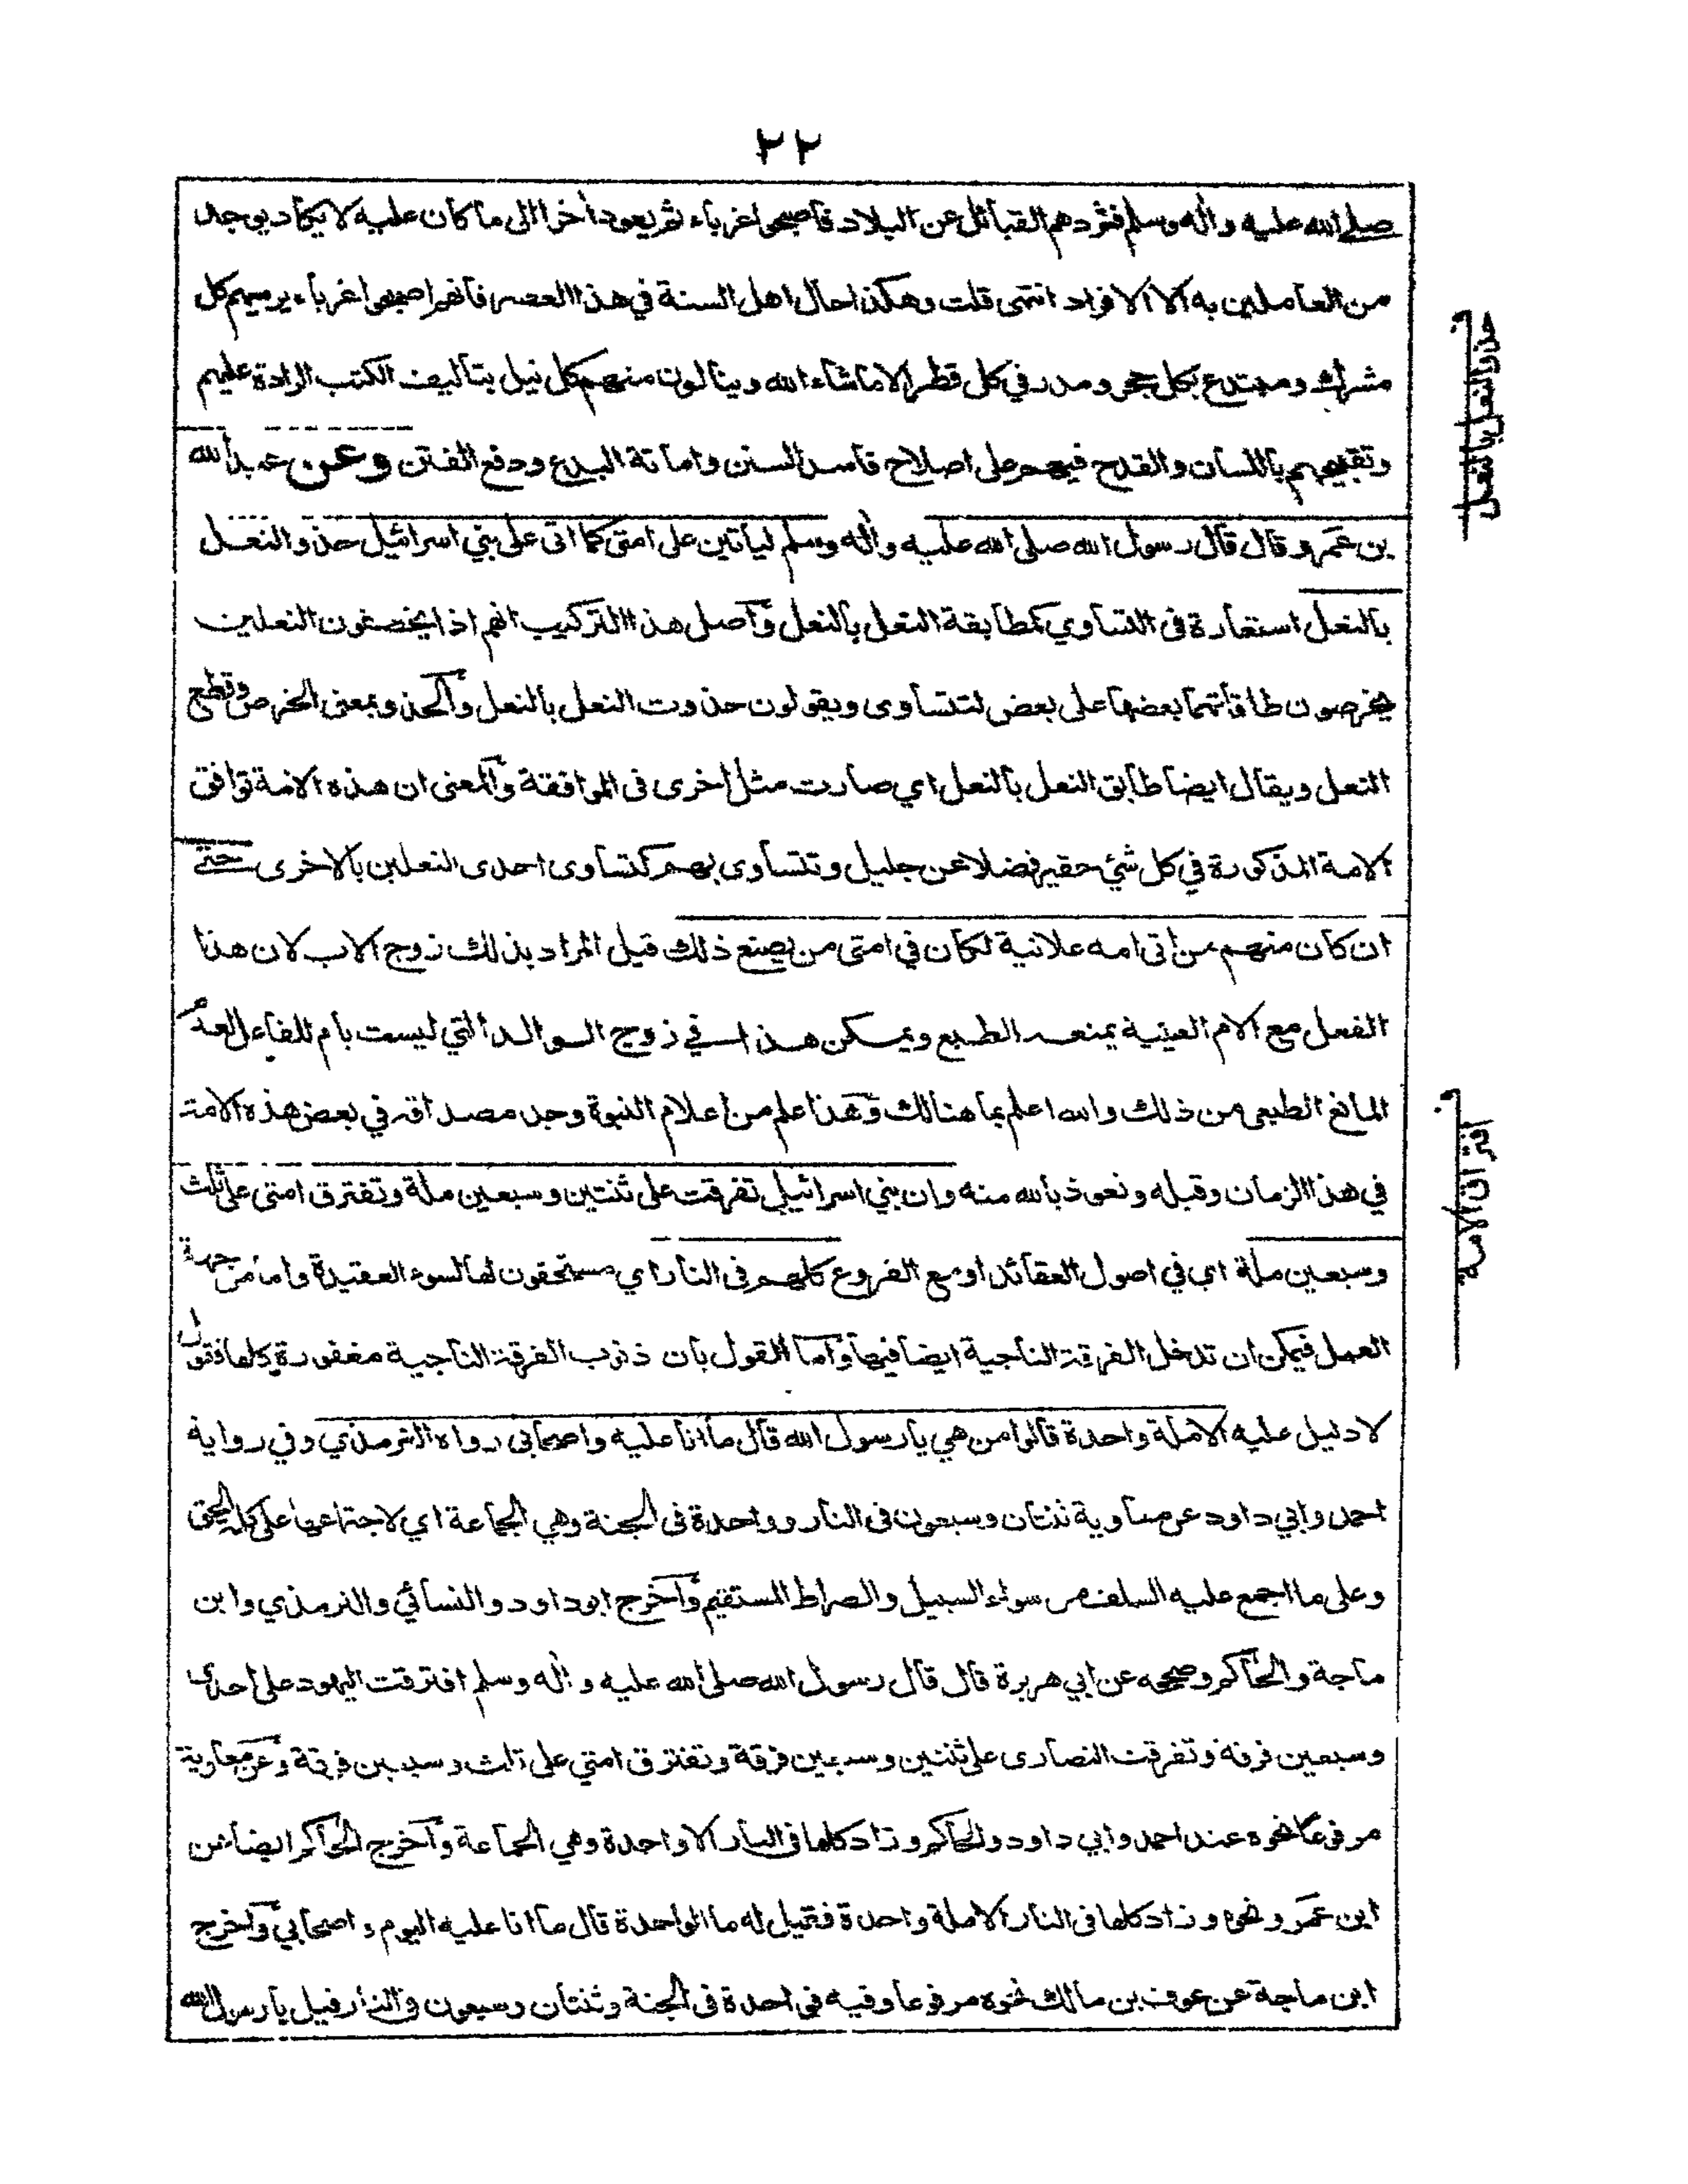 ٢٢
صلى الله عليه وأله وسلم فشردهم القبائل عن البلاد فأصبحوا غرباء ثم يعود أخرا الى ما كان عليه لا يكاد يوجد
من العاملين به الا الافراد انتهى قلت وهكذا حال اهل السنة في هذا العصر فأنهم اصبحوا غرباء يرميهم كل
مشرك ومبتدع بكل حجر ومدر في كل قطر الا ما شاء الله وينالون منهم كل نيل بتأليف الكتب الرادة عليهم
وتقبيحهم باللسان والقدح فيهم على اصلاح فاسد السنن واماتة البدع ودفع الفتن وعن عبد الله
بن عمرو قال قال رسول الله صلى الله عليه وأله وسلم ليأتين على امتي كما اتى على بني اسرائيل حذو النعل
بالنعل استعارة في التساوي كمطابقة النعل بالنعل وأصل هذا التركيب انهم اذا يخصفون النعلين
يخرصون طاقأتهما بعضها على بعض لتتساوى ويقولون حذوت النعل بالنعل والحذو بمعنى الخرص وقطع
النعل ويقال ايضا طابق النعل بالنعل اي صارت مثل اخرى في الموافقة والمعنى ان هذه الامة توافق
الامة المذكورة في كل شئ حقير فضلا عن جليل وتتساوى بهم كتساوى احدى النعلين بالاخرى حتى
ان كان منهم من أتى امه علانية لكان في امتي من يصنع ذلك قيل المراد بذلك زوج الاب لان هذا
الفعل مع الام العينية يمنعه الطبع ويمكن هذا في زوج الوالد التي ليست بأم للفاعل لعدم
المانع الطبعي من ذلك والله اعلم بما هنالك وهذا علم من اعلام النبوة وجد مصداقه في بعض هذه الامة
في هذا الزمان وقبله ونعوذ بالله منه وان بني اسرائيل تفرقت على ثنتين وسبعين ملة وتفترق امتي على ثلث
وسبعين ملة اي في اصول العقائد او مع الفروع كلهم في النار اي مستحقون لها لسوء العقيدة واما من جهة
العمل فيمكن ان تدخل الفرقة الناجية ايضا فيها وأما القول بأن ذنوب الفرقة الناجية مغفورة كلها فقول
لا دليل عليه الا ملة واحدة قالوا من هي يا رسول الله قال ما انا عليه واصحابي رواه الترمذي وفي رواية
احمد وابي داود عن معاوية ثنتان وسبعون في النار وواحدة في الجنة وهي الجماعة اي لاجتماعها على كل الحق
وعلى ما اجمع عليه السلف من سواء السبيل والصراط المستقيم وأخرج ابو داود والنسائي والترمذي وابن
ماجة والحاكم وصححه عن ابي هريرة قال قال رسول الله صلى الله عليه وأله وسلم افترقت اليهود على احدى
وسبعين فرقة وتفرقت النصارى على ثنتين وسبعين فرقة وتفترق امتي على ثلث وسبعين فرقة وعن معاوية
مرفوعا نحوه عند احمد وابي داود والحاكم وزاد كلها في النار الا واحدة وهي الجماعة وأخرج الحاكم ايضا عن
ابن عمرو نحوه وزاد كلها في النار الا ملة واحدة فقيل له ما الواحدة قال ما انا عليه اليوم واصحابي وأخرج
ابن ماجة عن عوف بن مالك نحوه مرفوعا وفيه في احدة في الجنة وثنتان وسبعون في النار قيل يا رسول الله
حذو النعل بالنعل
افتراق الامة